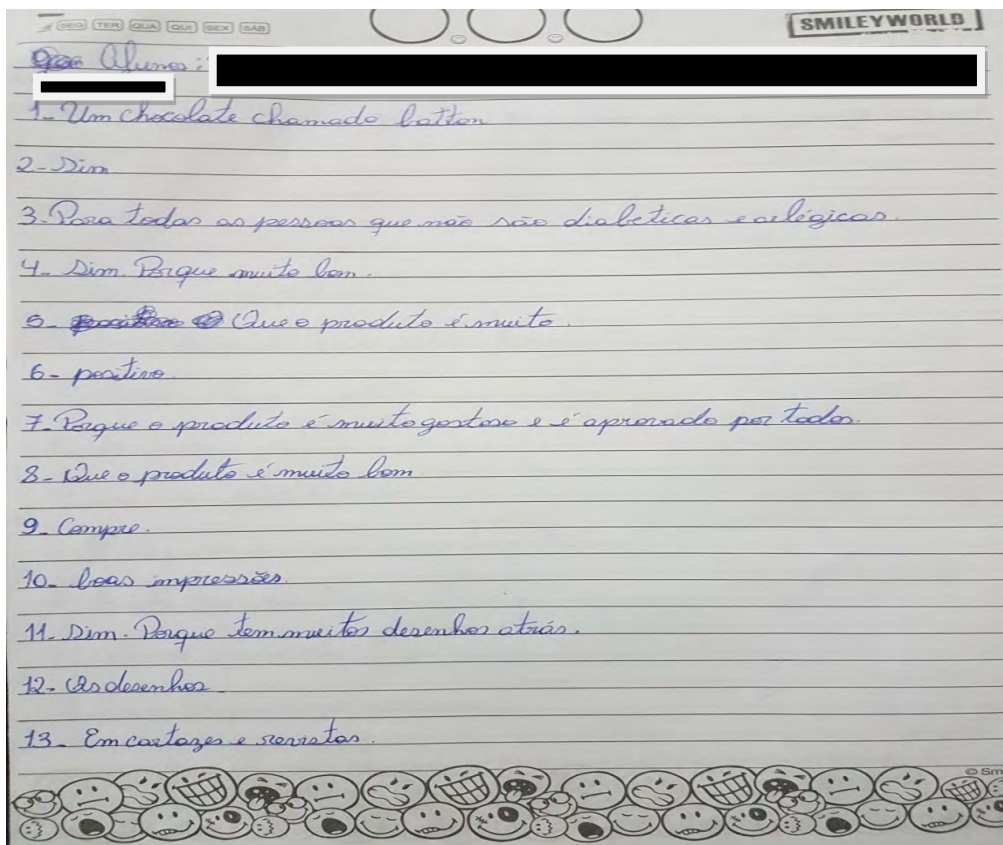 SEG TER QUA QUI SEX SÁB
SMILEYWORLD
Alunos:
1- Um chocolate chamado batton
2- Sim
3- Para todas as pessoas que não são diabeticas e arlégicas.
4- Sim. Porque muito bom.
5- Que o produto é muito.
6- positivo.
7- Porque o produto é muito gostoso e é aprovado por todos.
8- Que o produto é muito bom
9- Compre.
10- boas impressões
11- Sim. Porque tem muitos desenhos atrás.
12- Os desenhos
13- Em cartazes e revistas.
© Sm